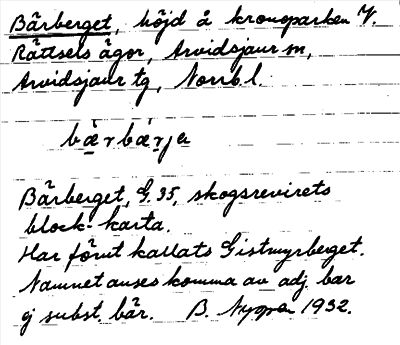 Bärberget, höjd å kronoparken Y.
Rättsels ägor, Arvidsjaur sn,
Arvidsjaur tg, Norrb l.
bärbärja
Bärberget, G. 35, skogsrevirets
block-karta.
Har förut kallats Gistmyrberget.
Namnet anses komma av adj. bar
ej subst. bär. B. Nyman 1932.